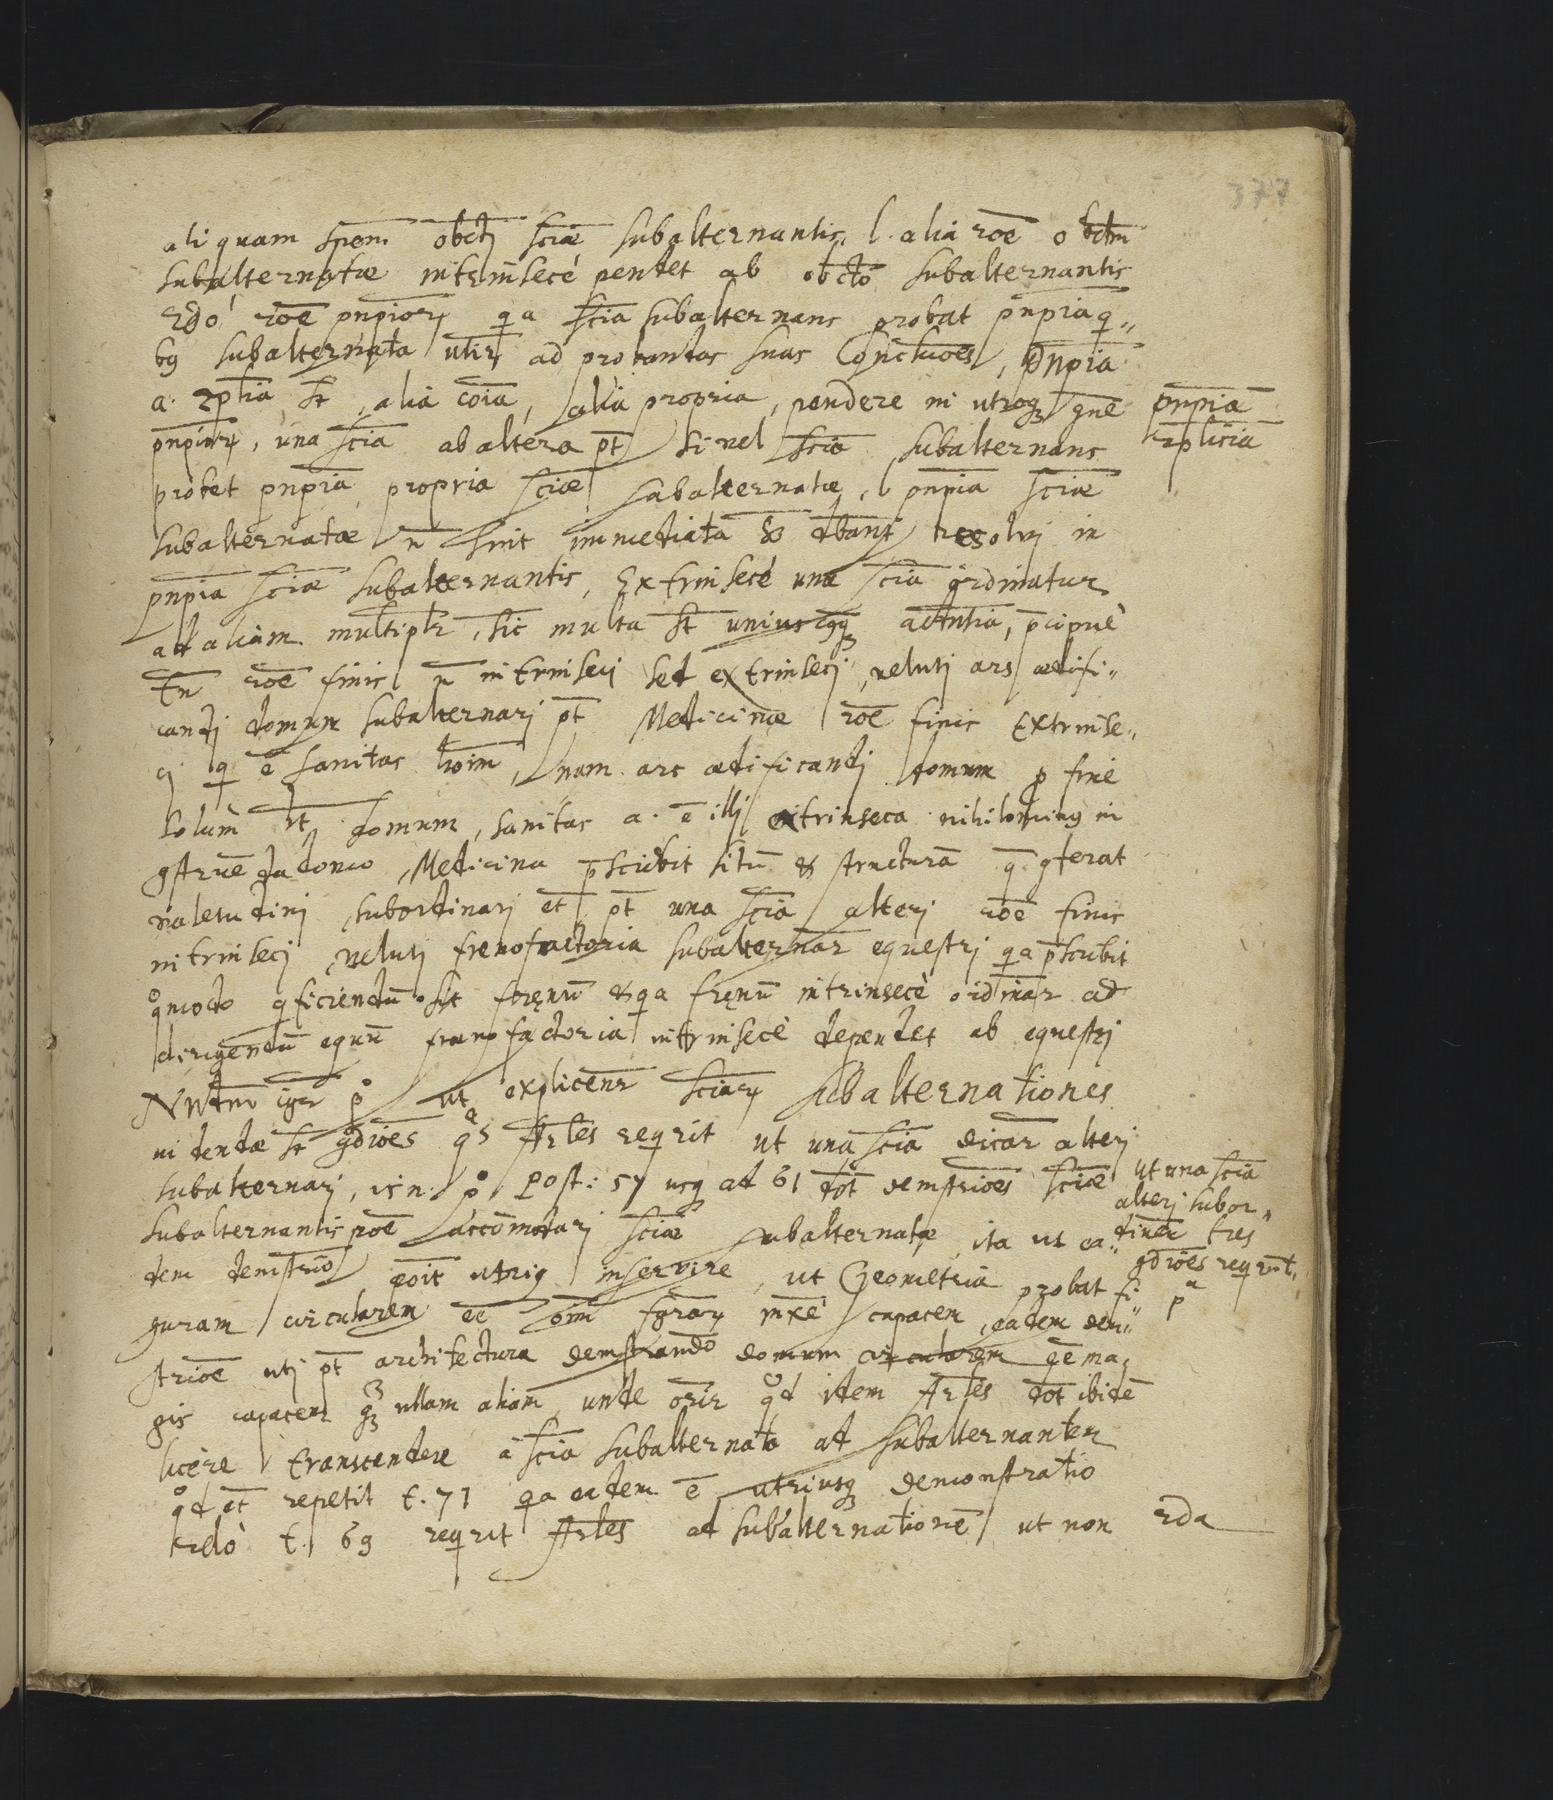 377
aliquam spem obcti sciæ subalternantis, l. alia roe obctm
subalternatæ intrinsecè pendet ab obcto subalternantis
2do roe pnpiorum qa scia subalternans probat pnpia q„
bg subalternata utir ad probandas suas Conclusioes, pnpia
a. 2plia st, alia coia, alia propria, pendere in utroqꝫ gne
pnpia
2plicia
pnpiorum, una scia ab altera pt si vel scia subalternans
probet pnpia propria sciæ subalternatæ, l pnpia sciæ
subalternatæ n sint immediata & resolvi in
pnpia sciæ subalternantis, Extrinsecè una scia ordinatur
ad aliam multiplr, sic multa st pcipuè
tn roe finis n intrinseci sed extrinseci, veluti ars ædifi„
candi domum subalternari pt Medicinæ roe finis Extrinse„
ci q ē sanitas hoim, nam ars ædificandi domum p fine
solum ht domum, sanitas a. ē illi extrinseca nihiloming in
gstruēda domo, Medicina pscribit situ & structurā q gferat
valetudini, subordinari et pt una scia alteri roe finis
intrinseci, veluti frenofactoria subalternar equestri qa pscribit
qmodo gficiendū sit frenū & qa frenū intrinsecè ordinar ad
dirigendū equū frænofactoria intrinsecè dependet ab equestri
Nutm igr pº ut explicenr sciarum subalternationes
videndæ st gdioes qas Arles reqrit ut una scia dicar alteri
subalternari, is n. pº Post: 57 usq ad 61 dot demstrioes sciæ
ut una scia
alteri subor„
dinar tres
gdioes reqrunt,
pa
subalternantis poe accomodari sciæ subalternatæ, ita ut ea„
dem demstrio poit utriq inservire, ut Geometria probat fi„
guram circularem ee oim fgrarum mxè capacem, eadem dem„
strioe uti pt architectura demstrando domum circularem eē ma„
gis capacem qꝫ ullam aliam, unde orir qd idem Arles dot ibidē
licère transcendere à scia subalternata ad subalternantem
qd et repetit t. 71 qa eadem ē utriusqꝫ demonstratio
t. 69 reqrit Arles ad subalternationē ut non
2da